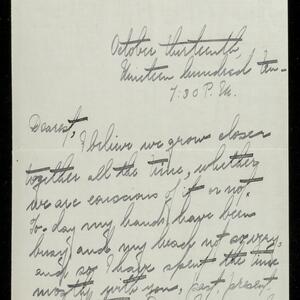 October thirteenth,
Nineteen hundred ten-
7:30 P.M.
Dearest,
I believe we grow closer
together all the time, whether
we are conscious of it or not.
To-day my hands have been
busy and my head not so very,
and so I have spent the time
mostly with you, past, present